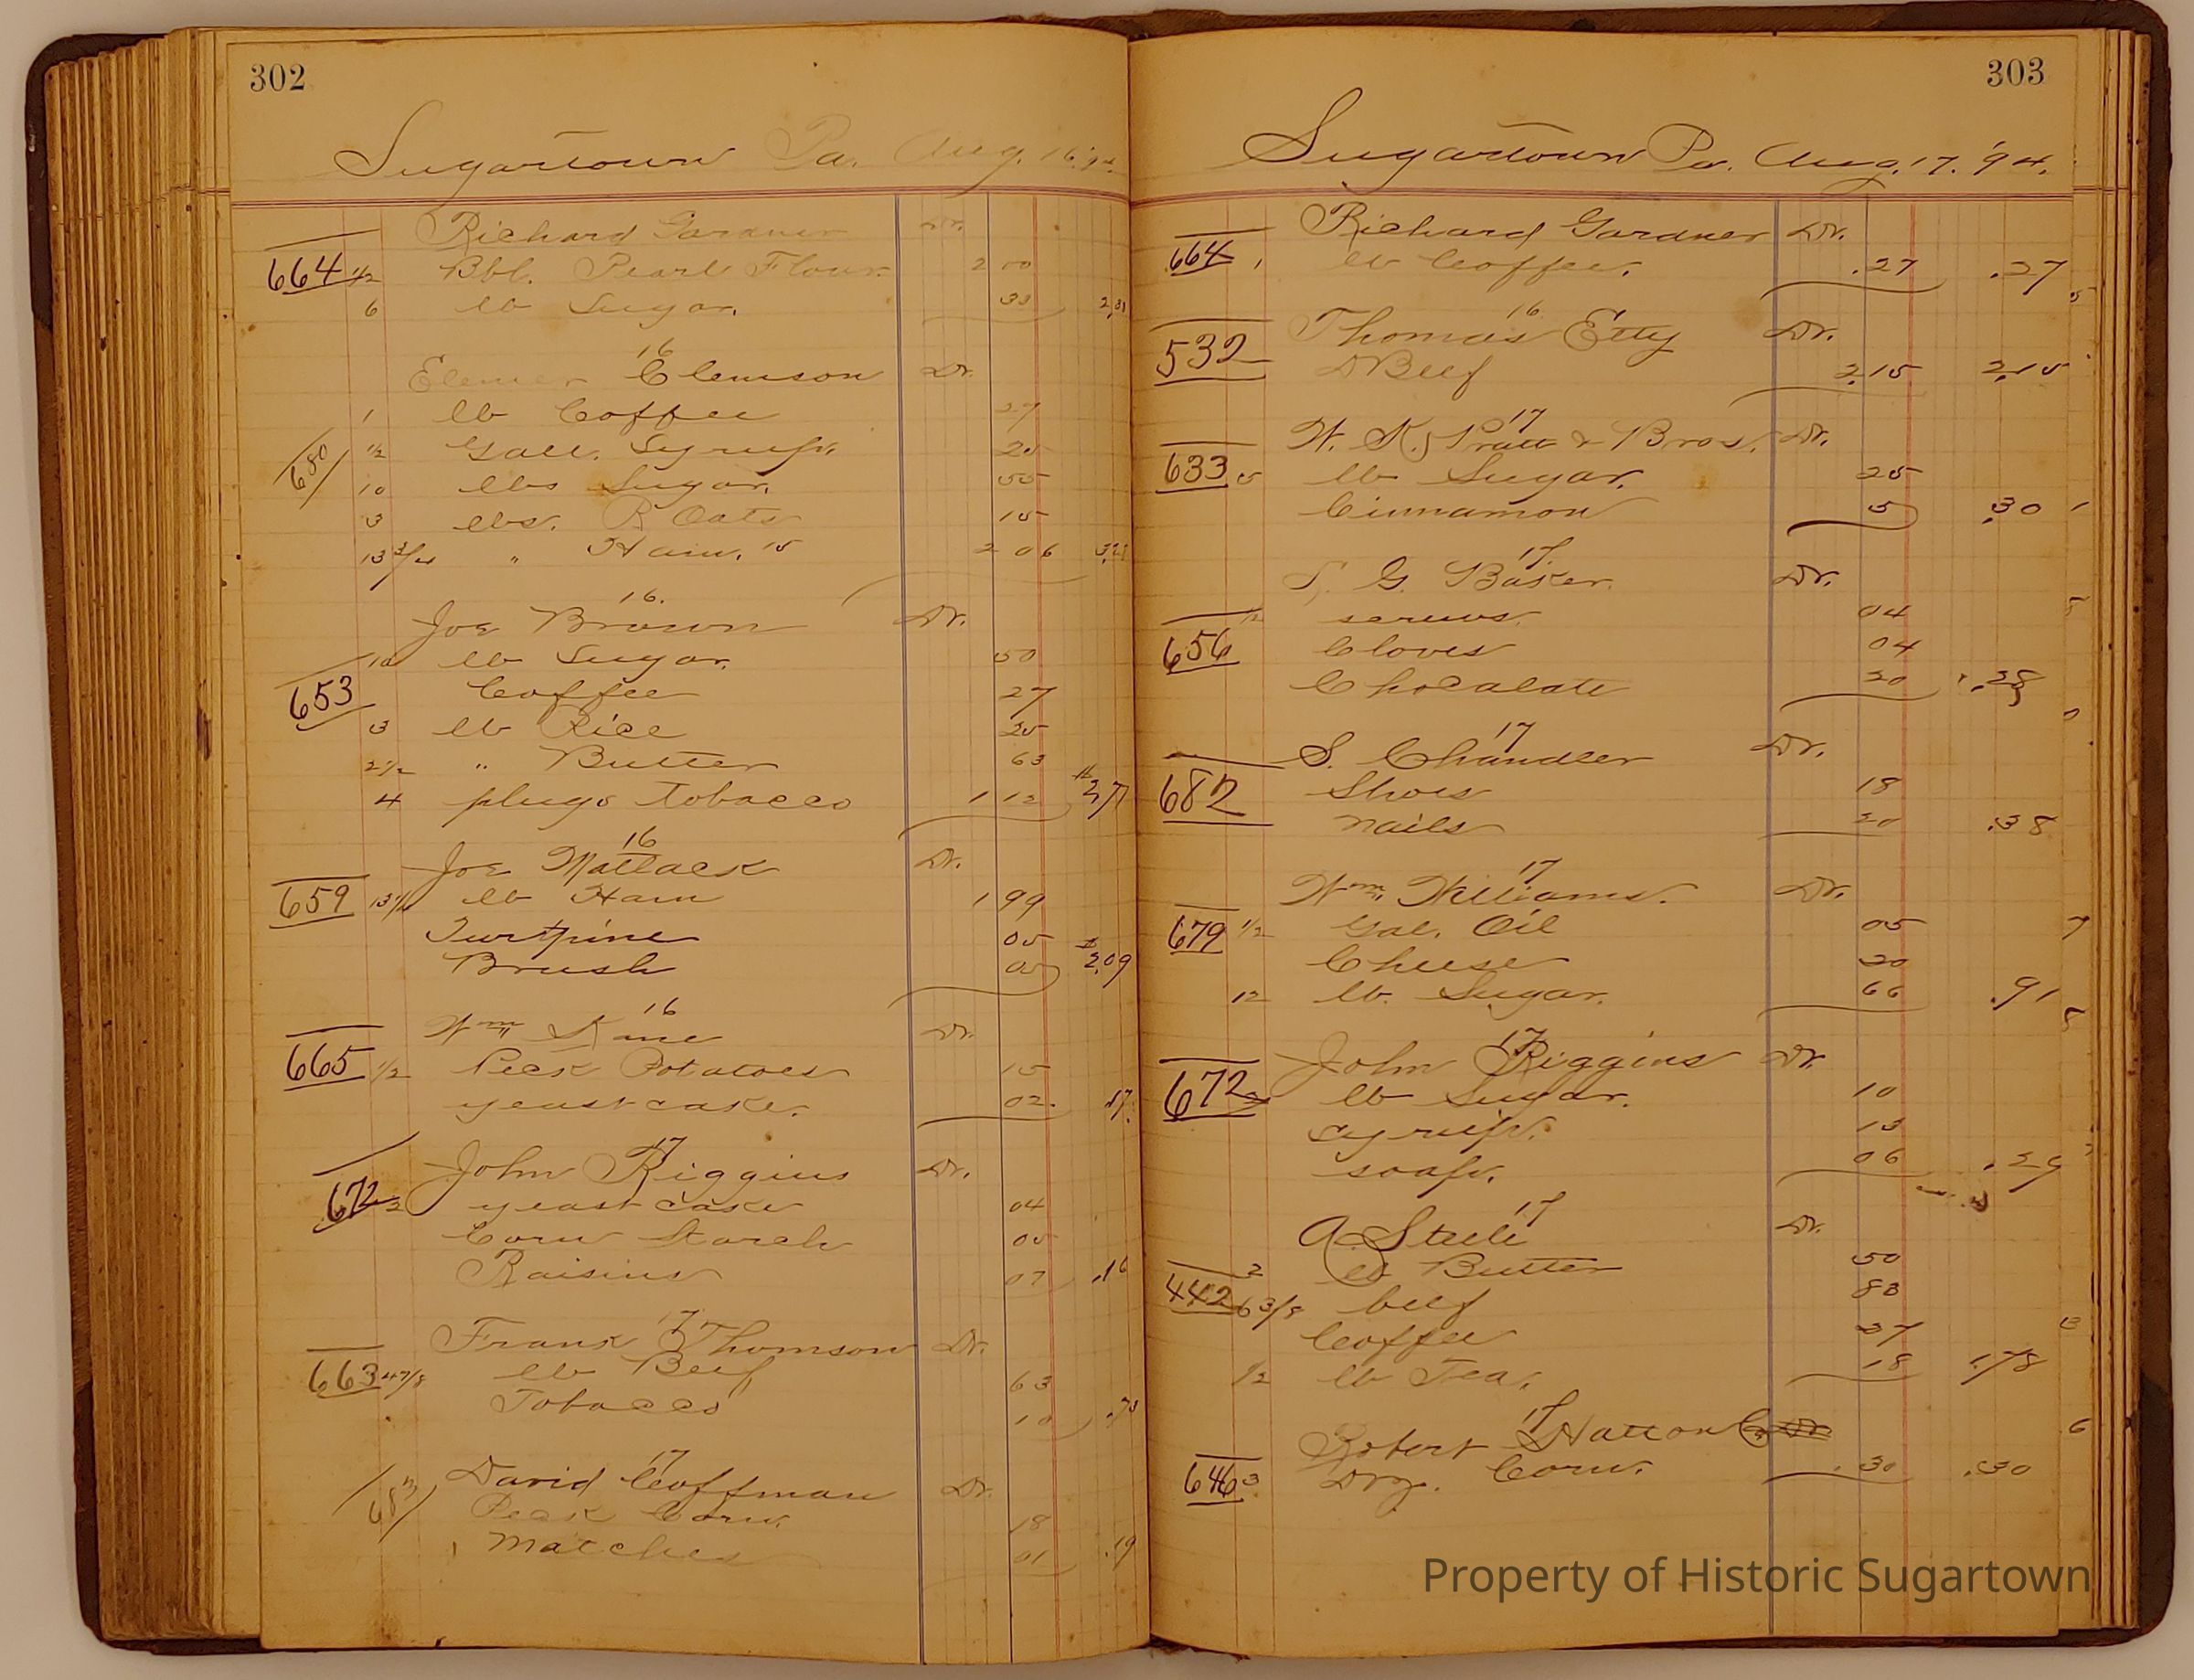 302
Sugartown Pa. Aug. 16. '94.
Richard Gardner Dr.
664 1/2 Bbl. Pearl Flour. 2 00
6 lb Sugar. 33 2.33
16
Elemer Clemson Dr.
1 lb Coffee 27
680 1/2 Gall. Syrup. 25
10 lbs Sugar. 55
3 lbs. R Oats 15
13 3/4 " Ham. 15 2 06
16.
Joe Brown Dr.
10 lb Sugar. 50
653 Coffee 27
3 lb Rice 25
2 1/2 " Butter 63
4 plugs tobacco 1 12 2,77
16
Joe Matlack Dr.
659 lb Ham 1 99
Turtpine 05
Brush 05 2.09
16
Wm Kane Dr.
665 1/2 Peck Potatoes 15
yeast cake. 02. .17.
17
John Riggins Dr.
672 2 yeast cake 04
Corn Starch 05
Raisins 07 .16
17
Frank Thomson Dr.
663 4 7/8 lb Beef 63
Tobacco 10 .73
17
David Coffman Dr.
683 Peck Corn. 18
1 Matches 01 .19
303
Sugartown Pa. Aug. 17. '94.
Richard Gardner Dr.
664 1 lb Coffee. .27 .27
16
Thomas Etty Dr.
532 Beef 2.15 2.15
17
W. K. Pratt & Bros. Dr.
633 5 lb Sugar. 25
Cinnamon 5 .30
17
G. Baker. Dr.
screws. 04
656 Cloves 04
Chocalate 20 .28
17
S. Chandler Dr.
682 Shoes 18
nails 20 .38
17
Wm Williams. Dr.
679 1/2 Gal. Oil 05
Cheese 20
12 lb. Sugar. 66 .91
17
John Riggins Dr.
672 2 lb Sugar. 10
syrup. 13
soap. 06 .29
17
A. Steele Dr.
2 lb Butter 50
442 6 3/8 beef 83
Coffee 27
1/2 lb Tea. 18 1.78
17
Robert Hatton Cr
646 3 Doz. Corn. .30 .30
Property of Historic Sugartown